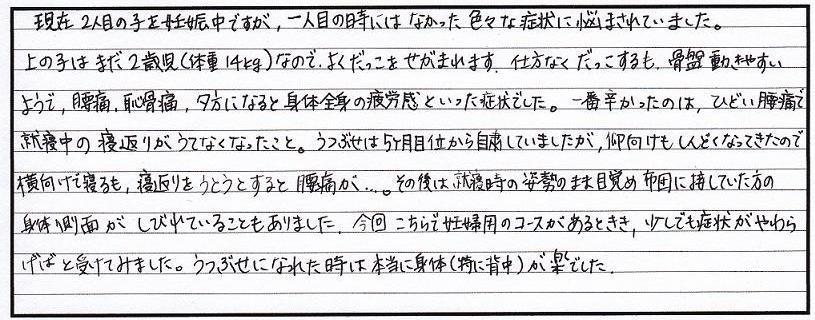 現在2人目の子を妊娠中ですが、一人目の時にはなかった色々な症状に悩まされていました。
上の子はまだ2歳児(体重14kg)なので、よくだっこをせがまれます。仕方なくだっこするも、骨盤動きやすい
ようで、腰痛、恥骨痛、夕方になると身体全身の疲労感といった症状でした。一番辛かったのは、ひどい腰痛で
就寝中の寝返りがうてなくなったこと。うつぶせは5ヶ月目位から自粛していましたが、仰向けもしんどくなってきたので
横向けで寝るも、寝返りをうとうとすると腰痛が…。その後は就寝時の姿勢のまま目覚め布団に接していた方の
身体側面がしびれていることもありました。今回こちらで妊婦用のコースがあるときき、少しでも症状がやわら
げばと受けてみました。うつぶせになれた時は本当に身体(特に背中)が楽でした。